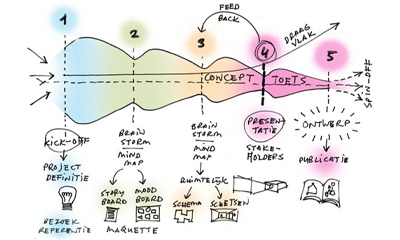 FEED
BACK
DRAAG
VLAK
1
2
3
4
5
CONCEPT
TOETS
KICK-OFF
PROJECT
DEFINITIE
BEZOEK
REFERENTIE
BRAIN
STORM
MIND
MAP
STORY
BOARD
MOOD
BOARD
MAQUETTE
BRAIN
STORM
MIND
MAP
RUIMTELIJK
SCHEMA
SCHETSEN
PRESEN-
TATIE
STAKE-
HOLDERS
ONTWERP
PUBLICATIE